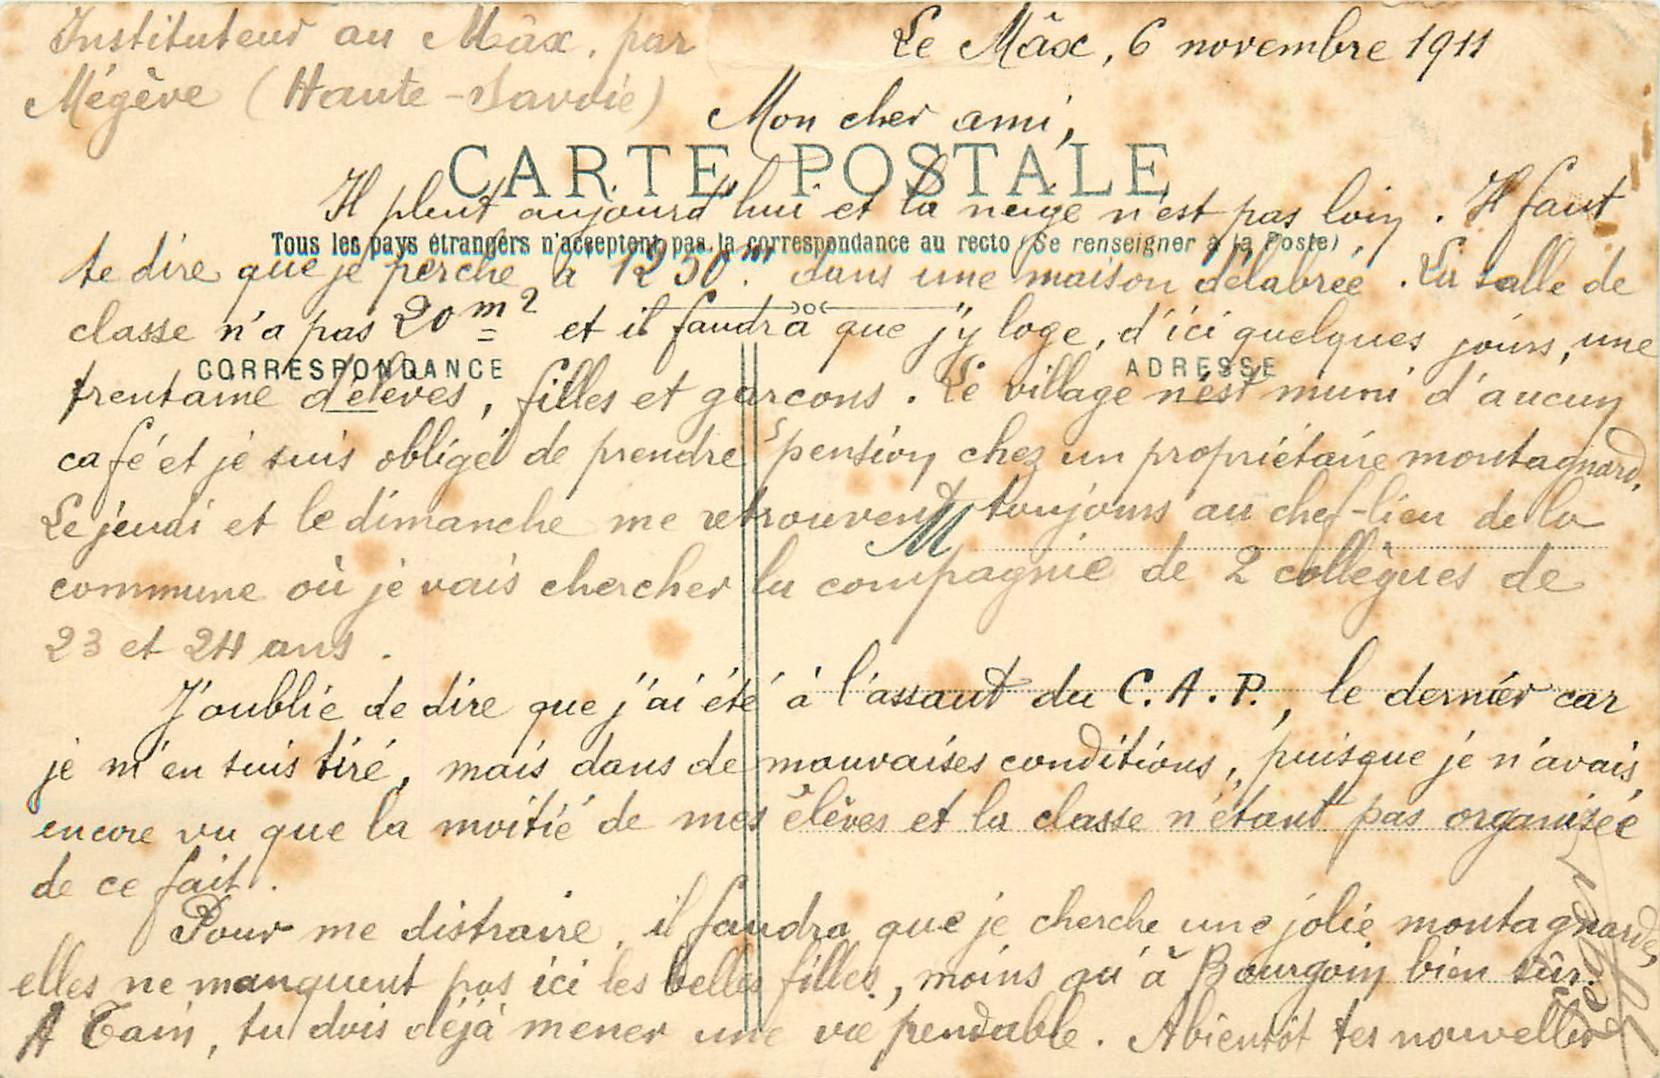 Instituteur au Mâx, par
Mégève (Haute-Savoie)
Le Mâx, 6 novembre 1911
Mon cher ami,
CARTE POSTALE
Il pleut aujourd'hui et la neige n'est pas loin. Il faut
Tous les pays étrangers n'acceptent pas la correspondance au recto (Se renseigner à la Poste)
te dire que je perche à 1250m. dans une maison délabrée. La salle de
classe n'a pas 20 m2 et il faudra que j'y loge, d'ici quelques jours, une
CORRESPONDANCE
ADRESSE
trentaine d'élèves, filles et garcons. Le village n'est muni d'aucun
café et je suis obligé de prendre pension chez un propriétaire montagnard.
Le jeudi et le dimanche me retrouvent toujours au chef-lieu de la
M
commune où je vais chercher la compagnie de 2 collègues de
23 et 24 ans.
J'oublie de dire que j'ai été à l'assaut du C.A.P., le dernier car
je m'en suis tiré, mais dans de mauvaises conditions, puisque je n'avais
encore vu que la moitié de mes élèves et la classe n'étant pas organisée
de ce fait.
Pour me distraire, il faudra que je cherche une jolie montagnarde,
elles ne manquent pas ici les belles filles, moins qu'à Bourgoin bien sûr.
A Tain, tu dois déjà mener une vie pendable. A bientôt tes nouvelles